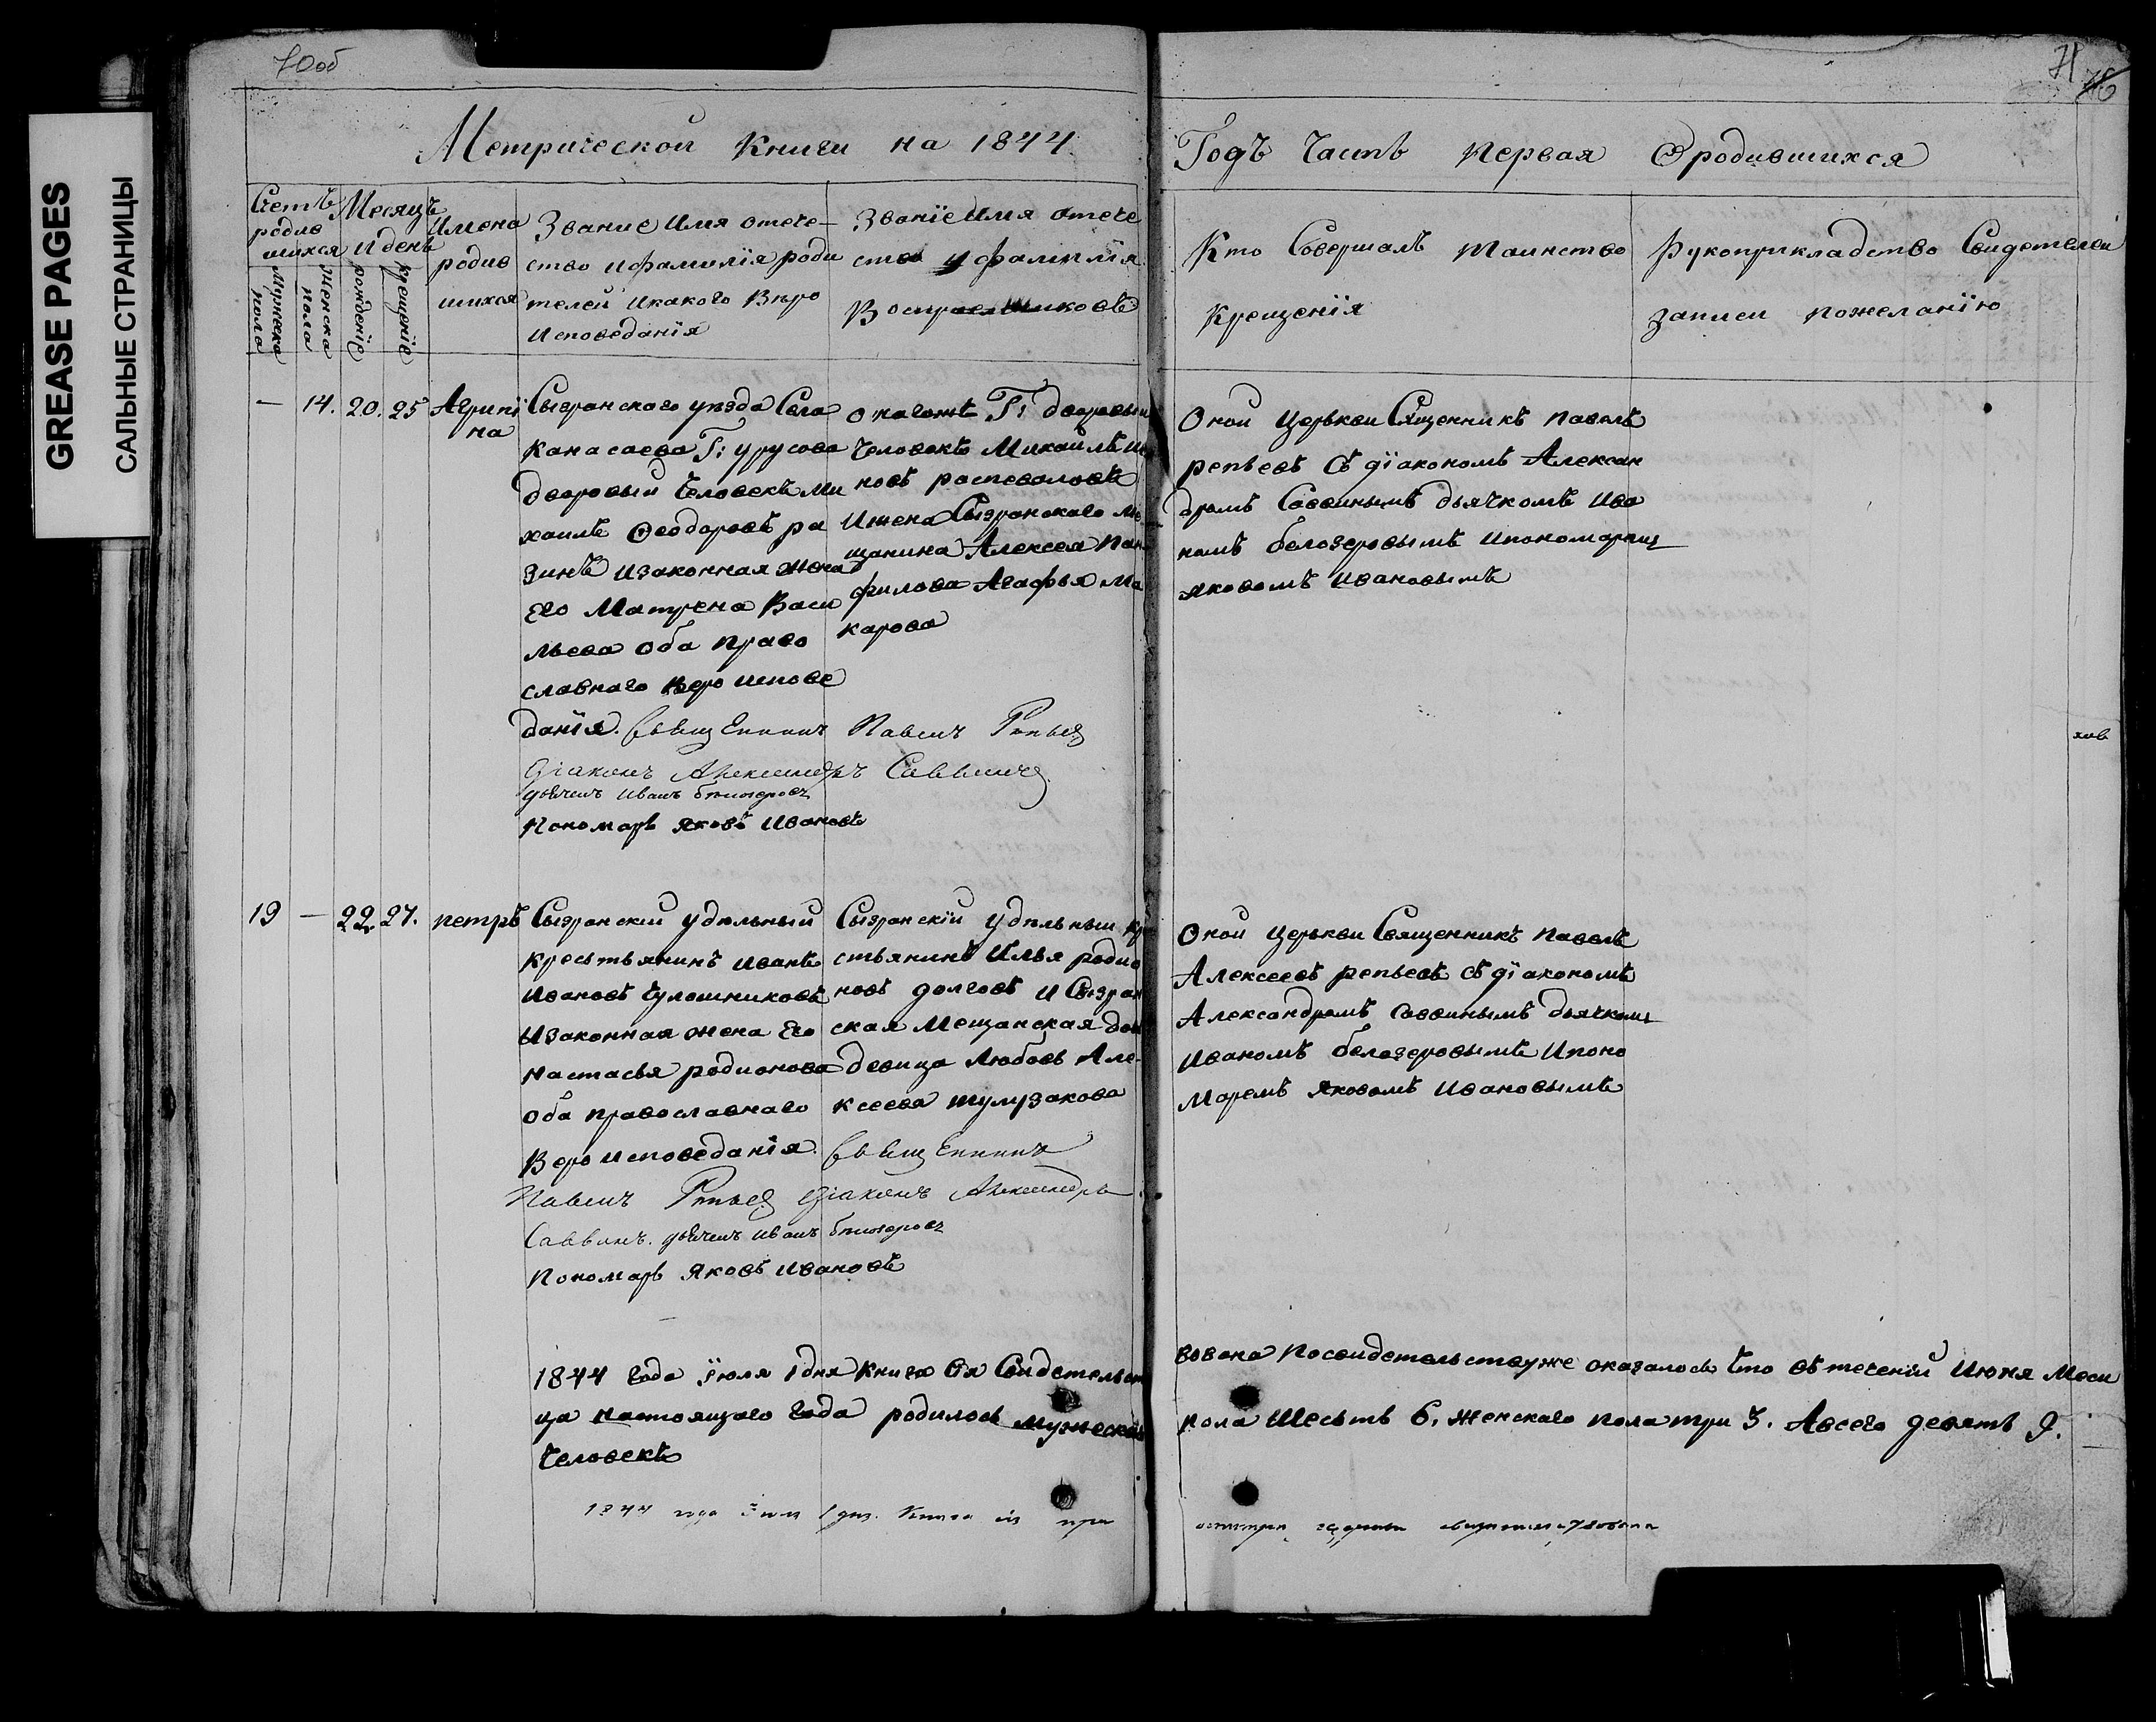 GREASE PAGES
САЛЬНЫЕ СТРАНИЦЫ
70об
71
Метрической Книги на 1844
Годъ Часть первая О родившихся
Счетъ родив шихся
Мужеска пола
Женска пола
Месяцъ и день
рожденіе
крещеніе
Имена
родив
шихся
Звание Имя отече-
ство и фамилія роди
телей и какого Вѣро
Исповеданія
Званіе Имя отече
ство и фамилія
Воспреемниковъ
Кто Совершалъ таинство
Крещенія
Рукоприкладство Свидетелей
записи пожеланію
— 14. 20. 25
Агрипі
на
Сызранскаго уезда Села
Канасаева Г: урусова
дворовый Человекъ Ми
хаилъ Феодоровъ ра
зинъ и законная жена
Его Матрена Васи
льева оба право
славнаго Веро испове
данія. Священникъ Павелъ Репьев
Діаконъ Александръ Саввинъ
дьячекъ Иванъ Белозеровъ
Пономарь Яковъ Ивановъ
Г: дворовый
Человекъ Михаилъ
новъ распеваловъ
И жена Сызранскаго ме
щанина Алексея Пан
филова Агафья Ма
карова
Оной Церькви Священникъ Павелъ
репьевъ Съ діакономъ Алексан
дромъ Саввинымъ дьячкомъ Ива
номъ белозеровымъ и пономаремъ
яковомъ Ивановымъ
19 — 22. 27. петръ
Сызранскій удельный
Крестьянинъ Иванъ
Ивановъ Чулошниковъ
И законная жена Его
настасья родионова
оба православнаго
Веро исповеданія. Священникъ
Павелъ Репьев Діаконъ Александръ
Саввинъ. дьячекъ Иванъ Белозеровъ
Пономарь Яковъ Ивановъ
Сызранскій удельный кре
стьянинъ Илья родио
новъ долговъ и Сызран
ская Мещанская доч
девица Любовь Але-
ксеева тулузакова
Оной Церькви Священникъ Павелъ
Алексеевъ репьевъ Съ діакономъ
Александромъ Саввинымъ дьячкомъ
Иваномъ белозеровымъ И поно
маремъ Яковомъ Ивановымъ
1844 года Іюля 1 дня Книга Сія Свидетельст
вована По свидетельству же оказалось Что въ течении Июня Меся
ца настоящаго года родилось мужеска
пола Шесьть 6. Женскаго пола три 3. А всего девять 9.
Человекъ
1844 года Іюля 1 дня. Книга сія